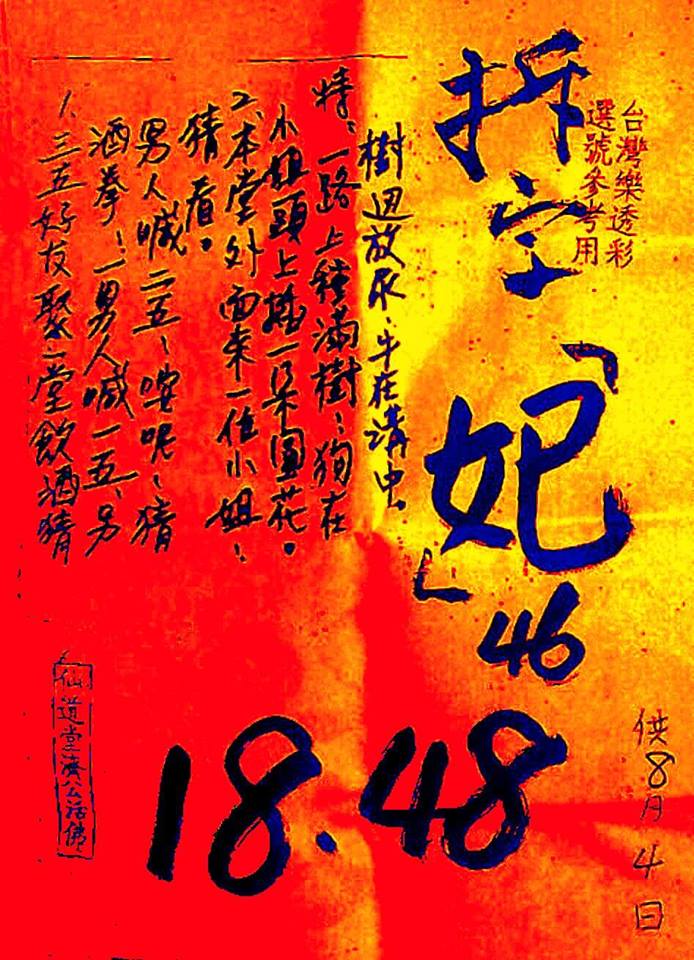 台灣樂透彩
選號參考用
拆字「妃」
46
18.48
供8月4日
1、三五好友聚一堂飲酒猜
酒拳、一男人喊一五、另
男人喊二五、哎呢、猜
猜看。
2、本堂外面來一位小姐、
小姐頭上插一朵圓花。
特、一路上種滿樹、狗在
樹迌放尿、牛在溝虫
仙道堂濟公活佛